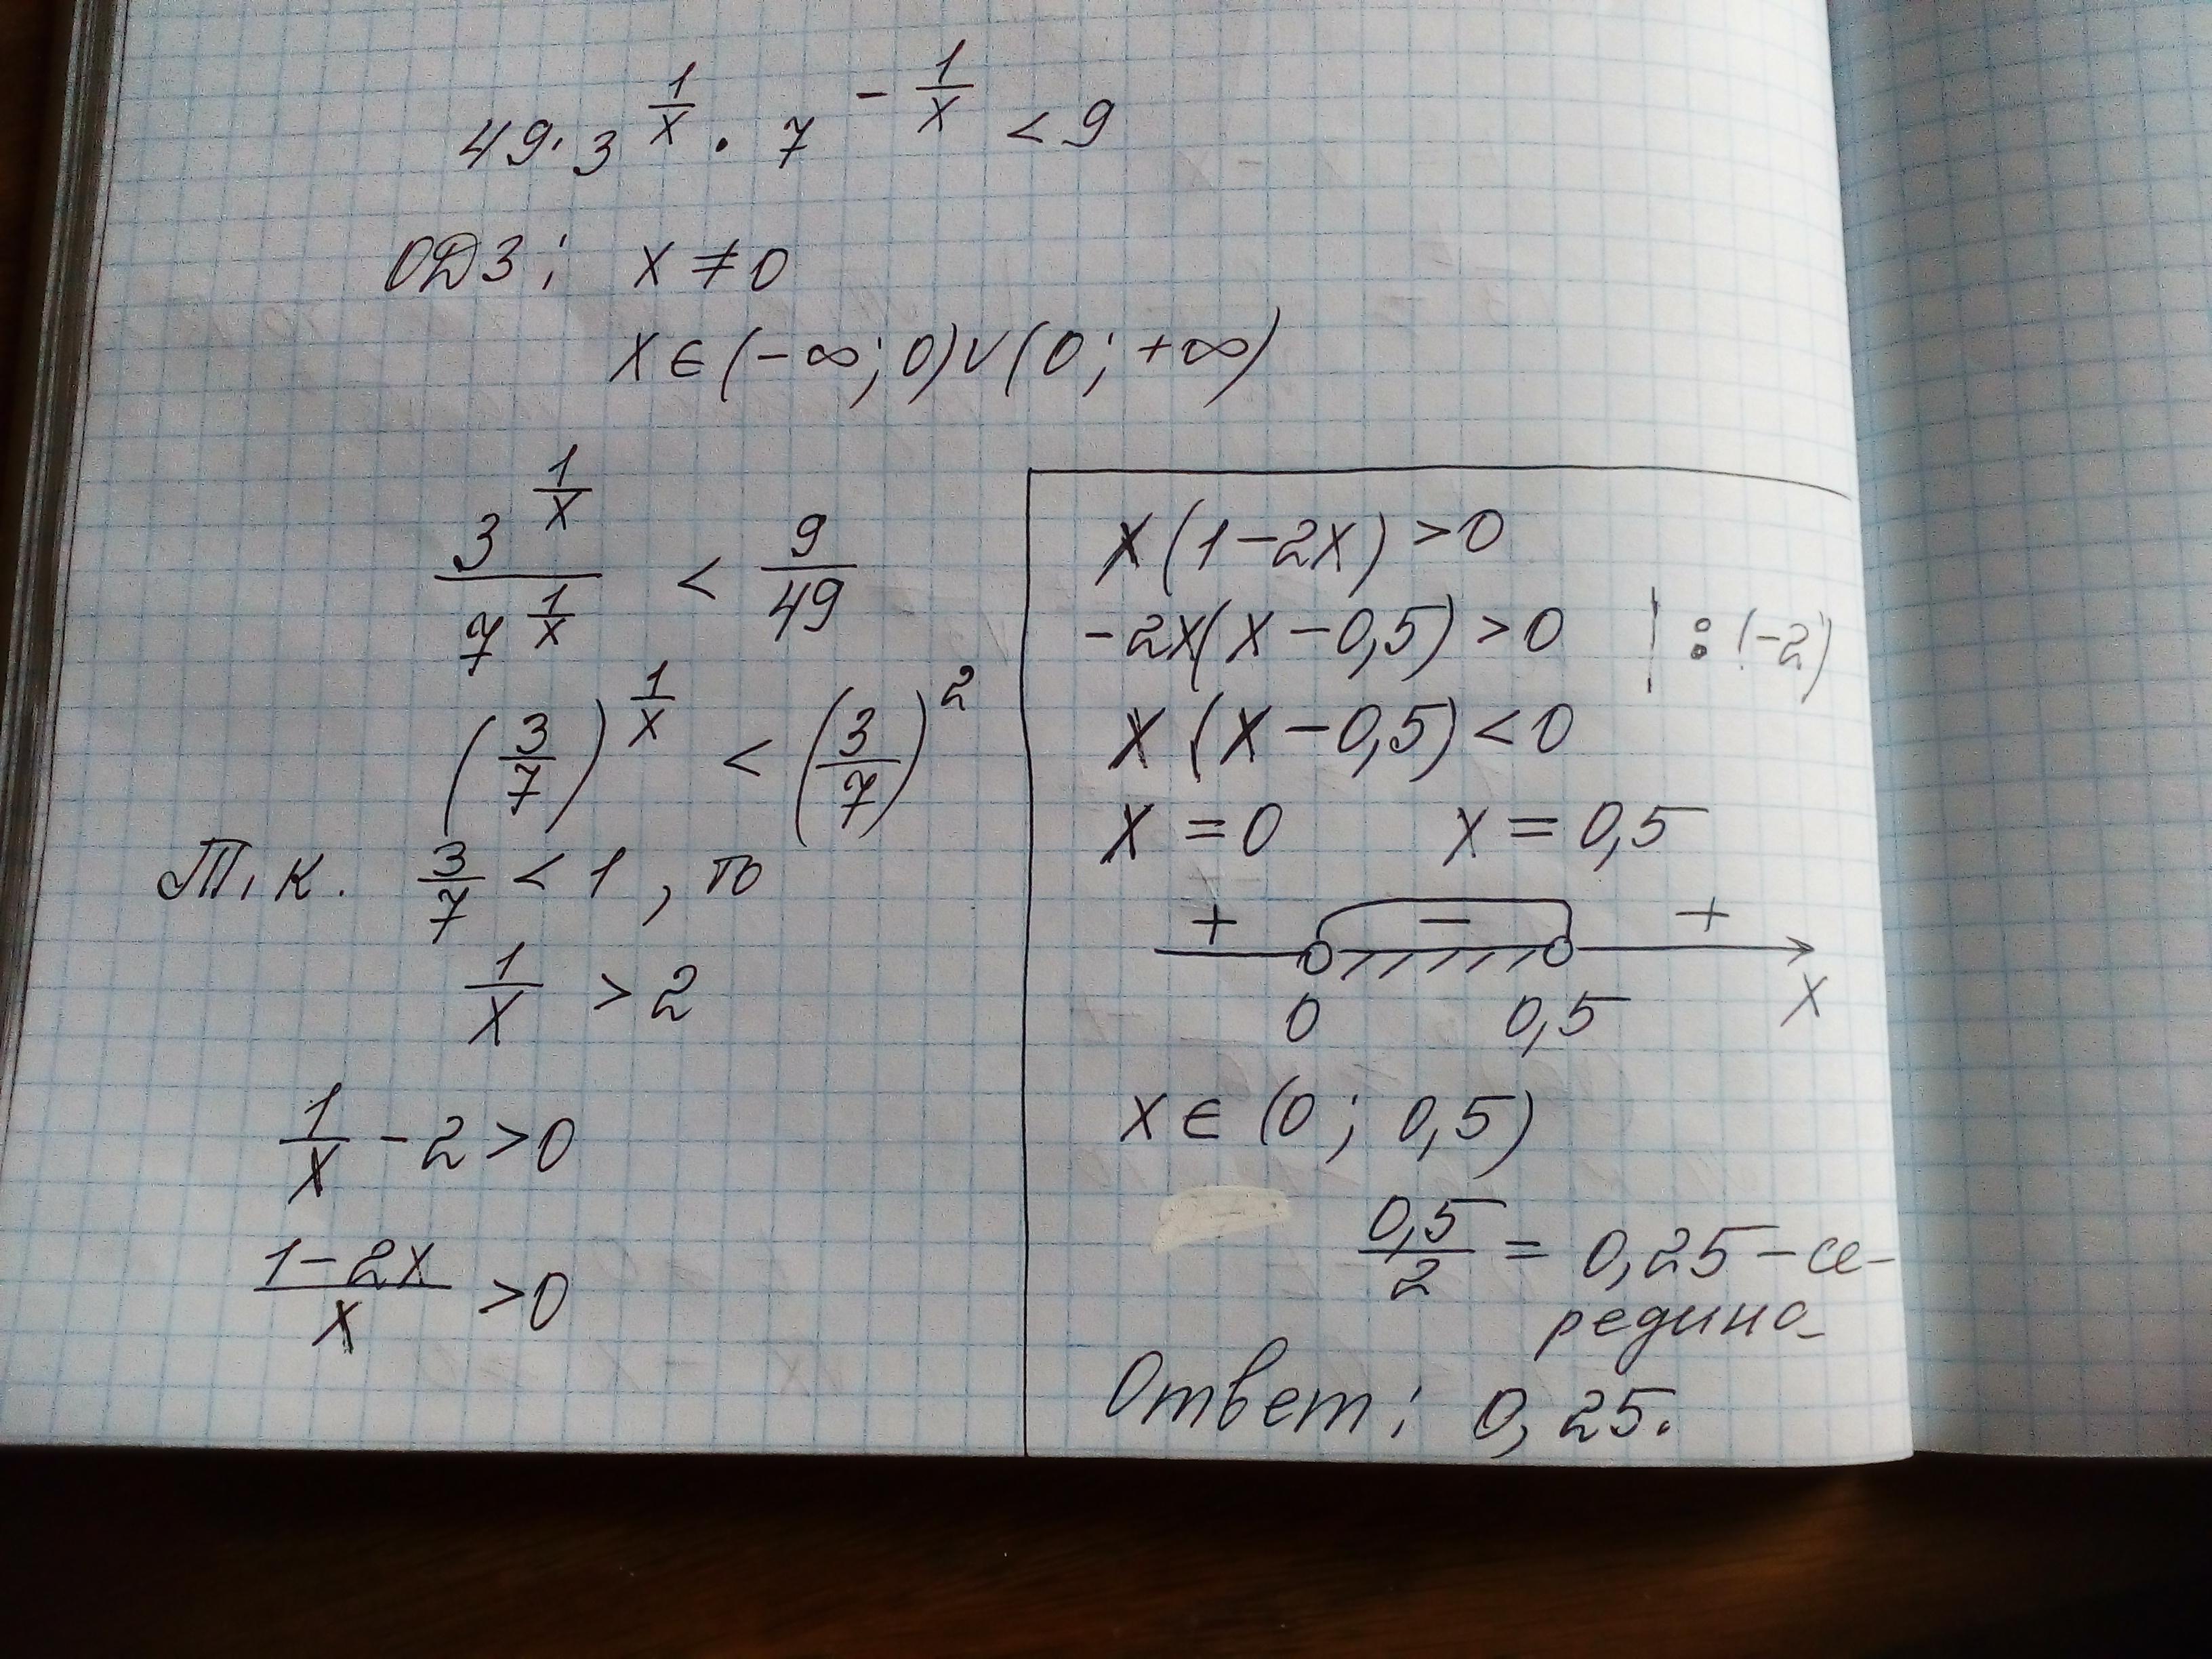 49·3^(1/x) · 7^(-1/x) < 9
ОДЗ: x ≠ 0
x ∈ (-∞; 0) ∪ (0; +∞)
3^(1/x) / 7^(1/x) < 9/49
(3/7)^(1/x) < (3/7)^2
Т.к. 3/7 < 1, то
1/x > 2
1/x - 2 > 0
(1-2x)/x > 0
x(1-2x) > 0
-2x(x-0,5) > 0 | : (-2)
x(x-0,5) < 0
x = 0 x = 0,5
+ - +
0 0,5 x
x ∈ (0; 0,5)
0,5/2 = 0,25 - се-
редина
Ответ: 0,25.